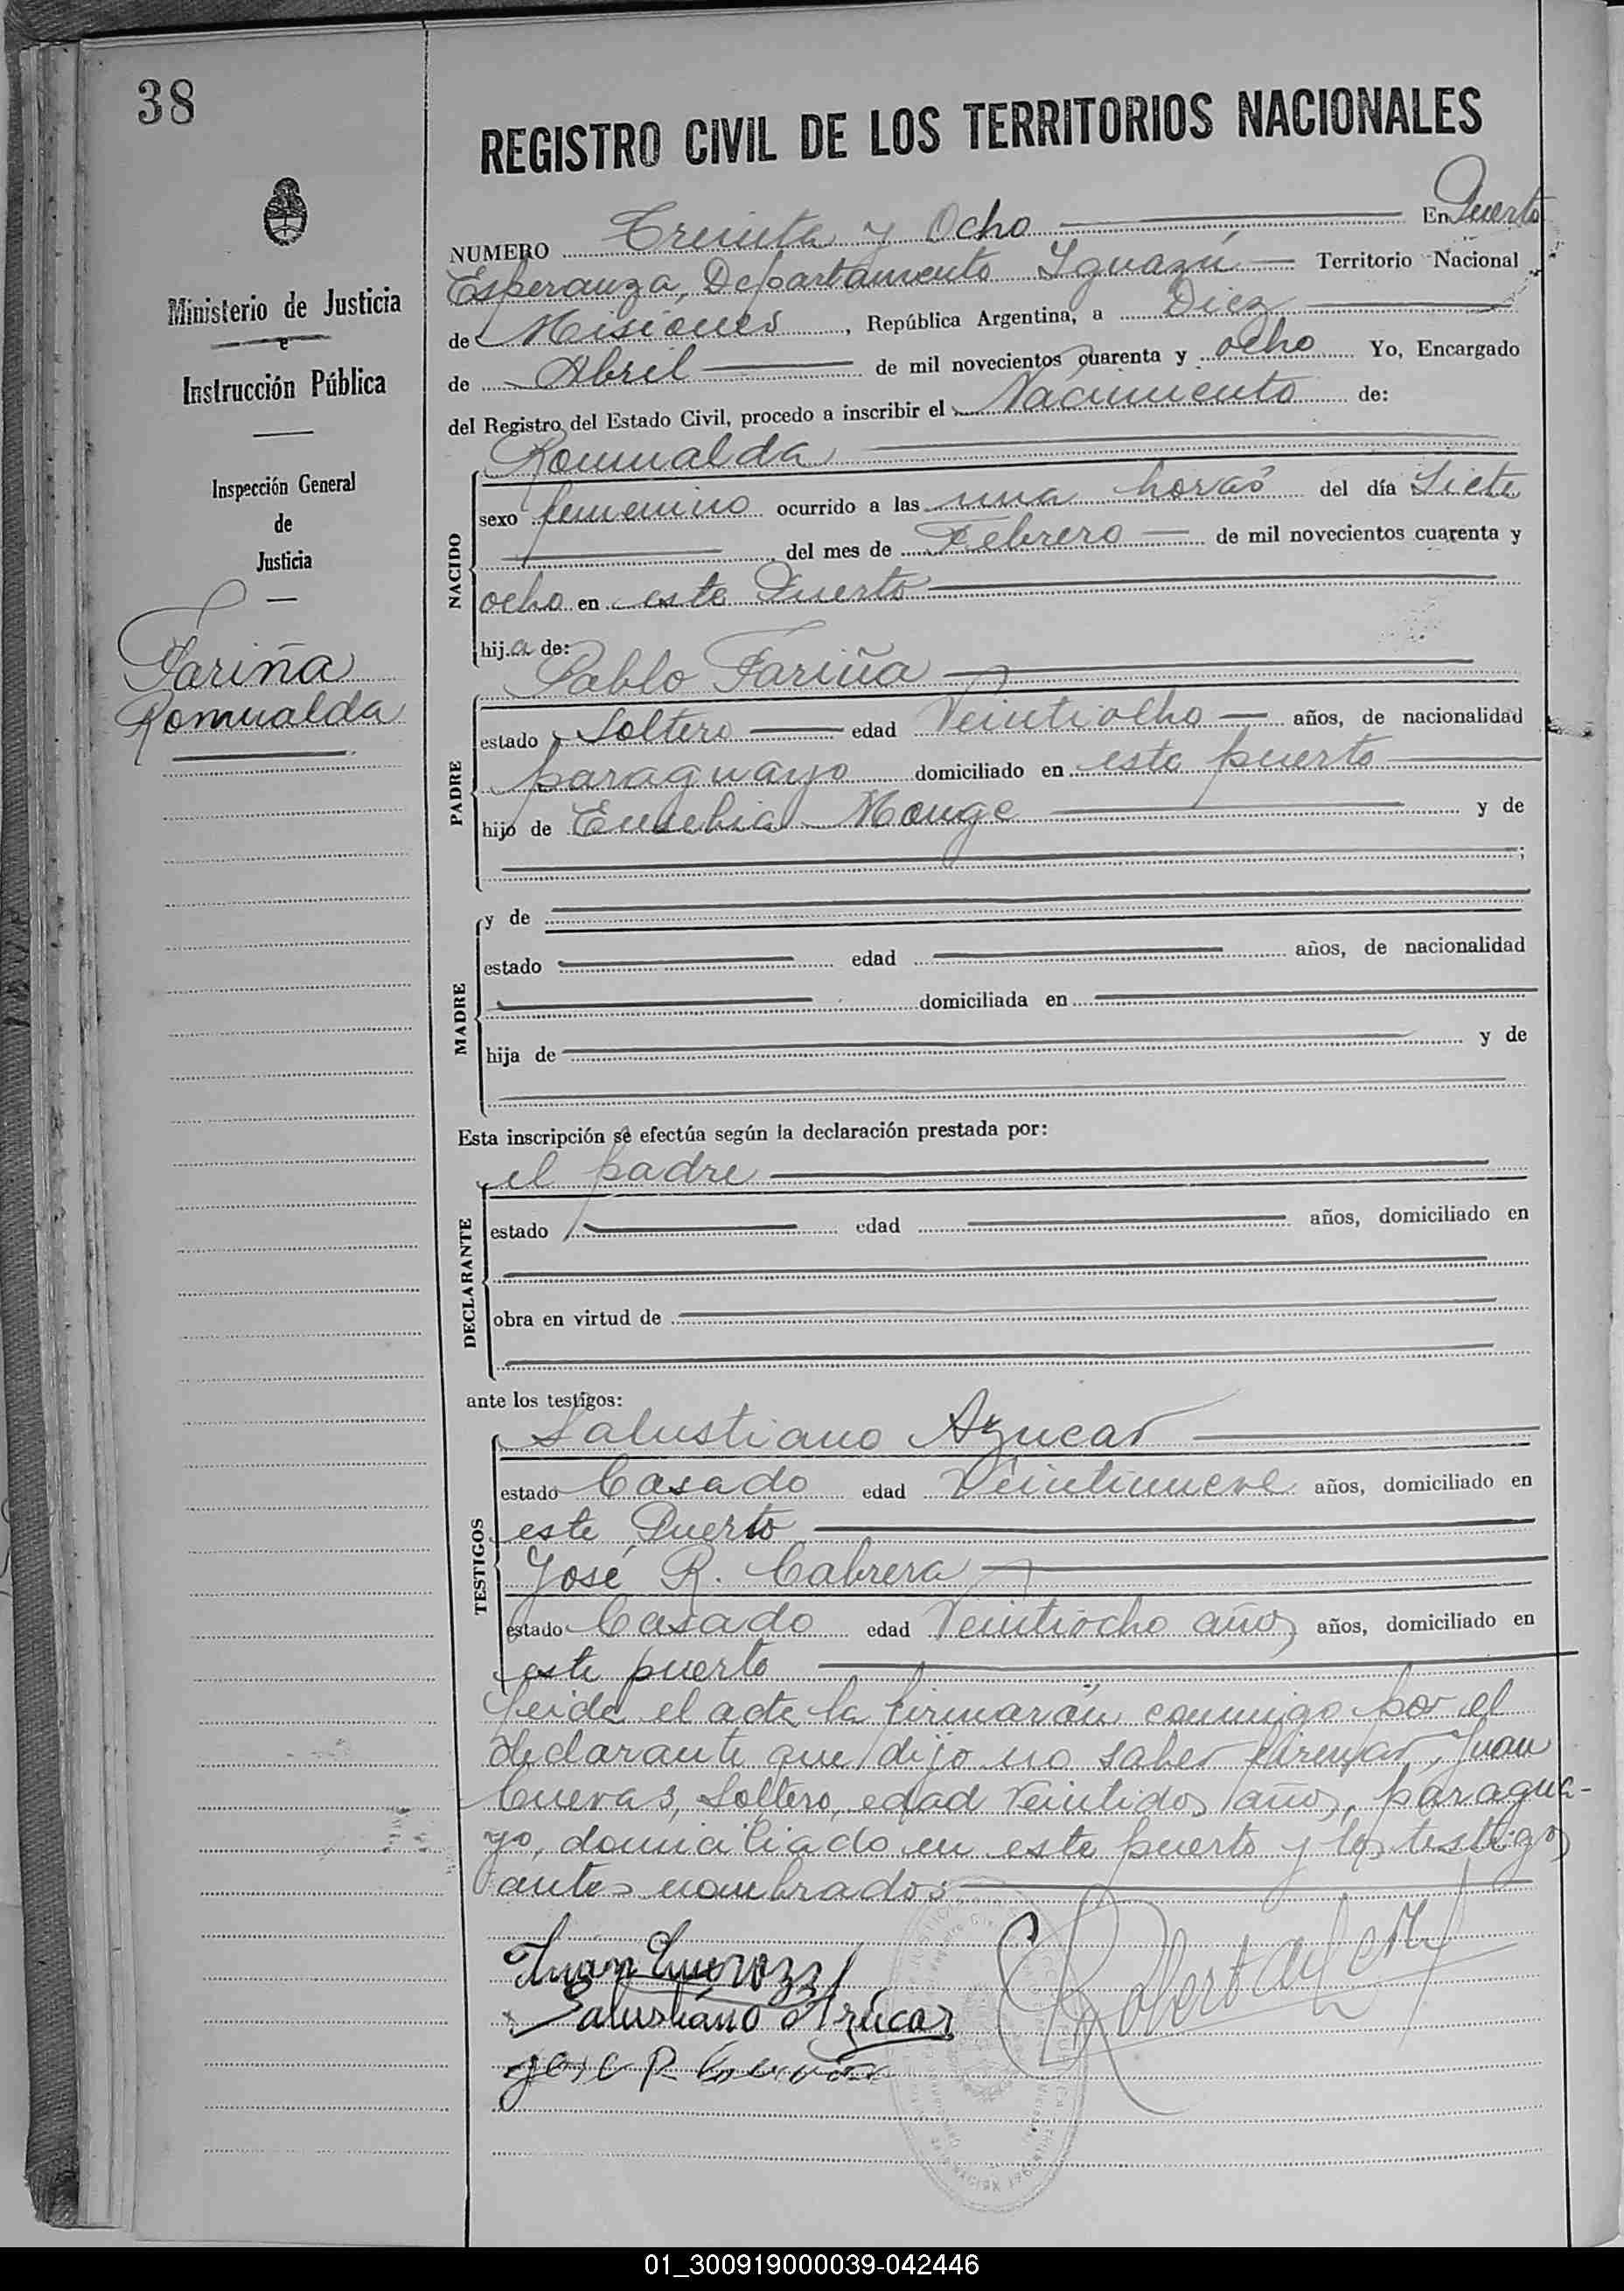 38
REGISTRO CIVIL DE LOS TERRITORIOS NACIONALES
NUMERO Treinta y Ocho En Puerto
Esperanza, Departamento Iguazú Territorio Nacional
de Misiones, República Argentina, a Diez
de Abril de mil novecientos cuarenta y ocho Yo, Encargado
del Registro del Estado Civil, procedo a inscribir el Nacimiento de:
Ministerio de Justicia
e
Instrucción Pública
Inspección General
de
Justicia
Fariña
Romualda
NACIDO
Romualda
sexo femenino ocurrido a las una horas del día Siete
del mes de Febrero de mil novecientos cuarenta y
ocho en este Puerto
hija de:
PADRE
Pablo Fariña
estado Soltero edad Veintiocho años, de nacionalidad
paraguayo domiciliado en este puerto
hijo de Eusebia Monge y de
;
MADRE
y de
estado edad años, de nacionalidad
domiciliada en
hija de y de
Esta inscripción se efectúa según la declaración prestada por:
DECLARANTE
el padre
estado edad años, domiciliado en
obra en virtud de
ante los testigos:
TESTIGOS
Salustiano Azucar
estado Casado edad Veintinueve años, domiciliado en
este Puerto
José R. Cabrera
estado Casado edad Veintiocho años años, domiciliado en
este puerto
Leida el acta la firmarán conmigo por el
declarante que dijo no saber firmar, Juan
Cuevas, Soltero, edad Veintidos años, paragua-
yo, domiciliado en este puerto y los testigos
antes nombrados
Salustiano Azúcar
01_300919000039-042446